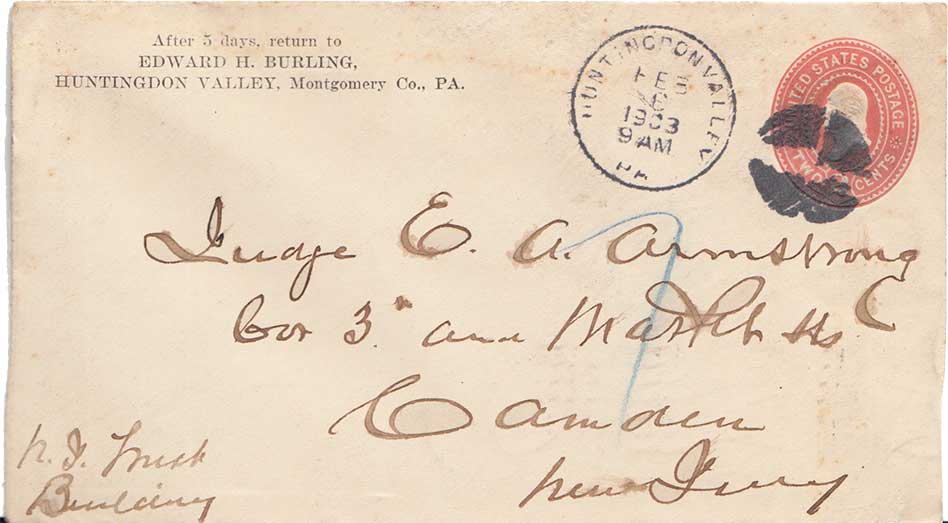 After 5 days, return to
EDWARD H. BURLING,
HUNTINGDON VALLEY, Montgomery Co., PA.
HUNTINGDON VALLEY
FEB
6
1903
9 AM
PA.
UNITED STATES POSTAGE
TWO CENTS
Judge E. A. Armstrong
Cor 3" and Market Sts
Camden
New Jersey
N. J. Trust
Building